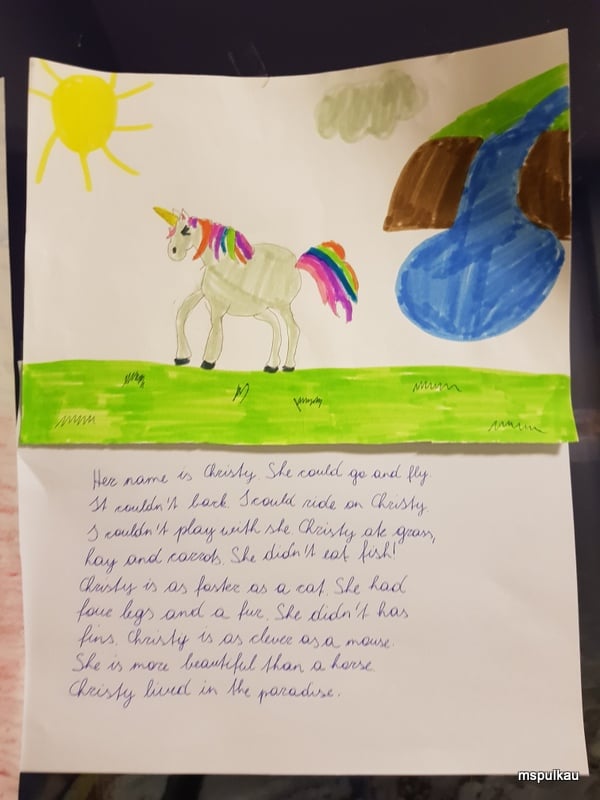 Her name is Christy. She could go and fly
It couldn't bark. I could ride on Christy.
I couldn't play with she. Christy ate grass,
hay and carrots. She didn't eat fish!
Christy is as faster as a cat. She had
four legs and a fur. She didn't has
fins. Christy is as clever as a mouse.
She is more beautiful than a horse.
Christy lived in the paradise.
mspulkau